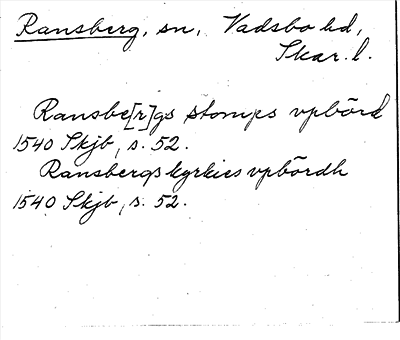 Ransberg, sn, Vadsbo hd,
Skar. l.
Ransbe[r]gs stomps vpbörd
1540 Skjb, s. 52.
Ransbergs kyrkies vpbördh
1540 Skjb, s. 52.